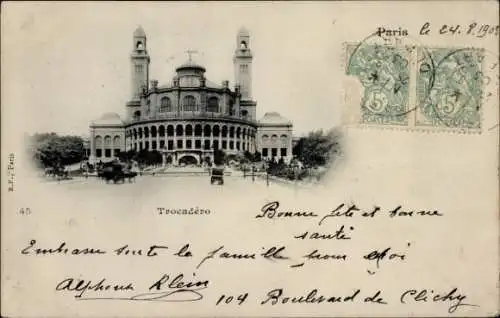 Paris le 24.8.1902
5 5
B.F., Paris
45
Trocadéro
Bonne fête et bonne
santé
Embrasse toute la famille pour toi
Alphonse Klein
104 Boulevard de Clichy